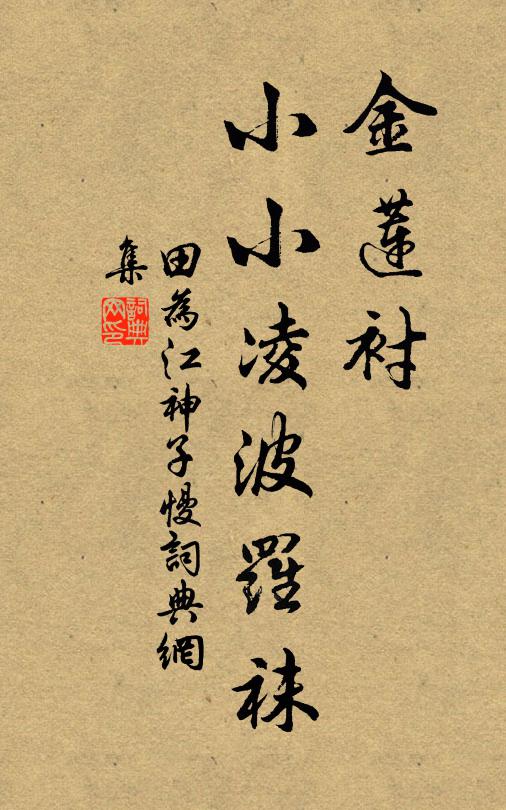 金蓮衬
小小凌波羅袜
田為江神子慢詞典網
集
詞典